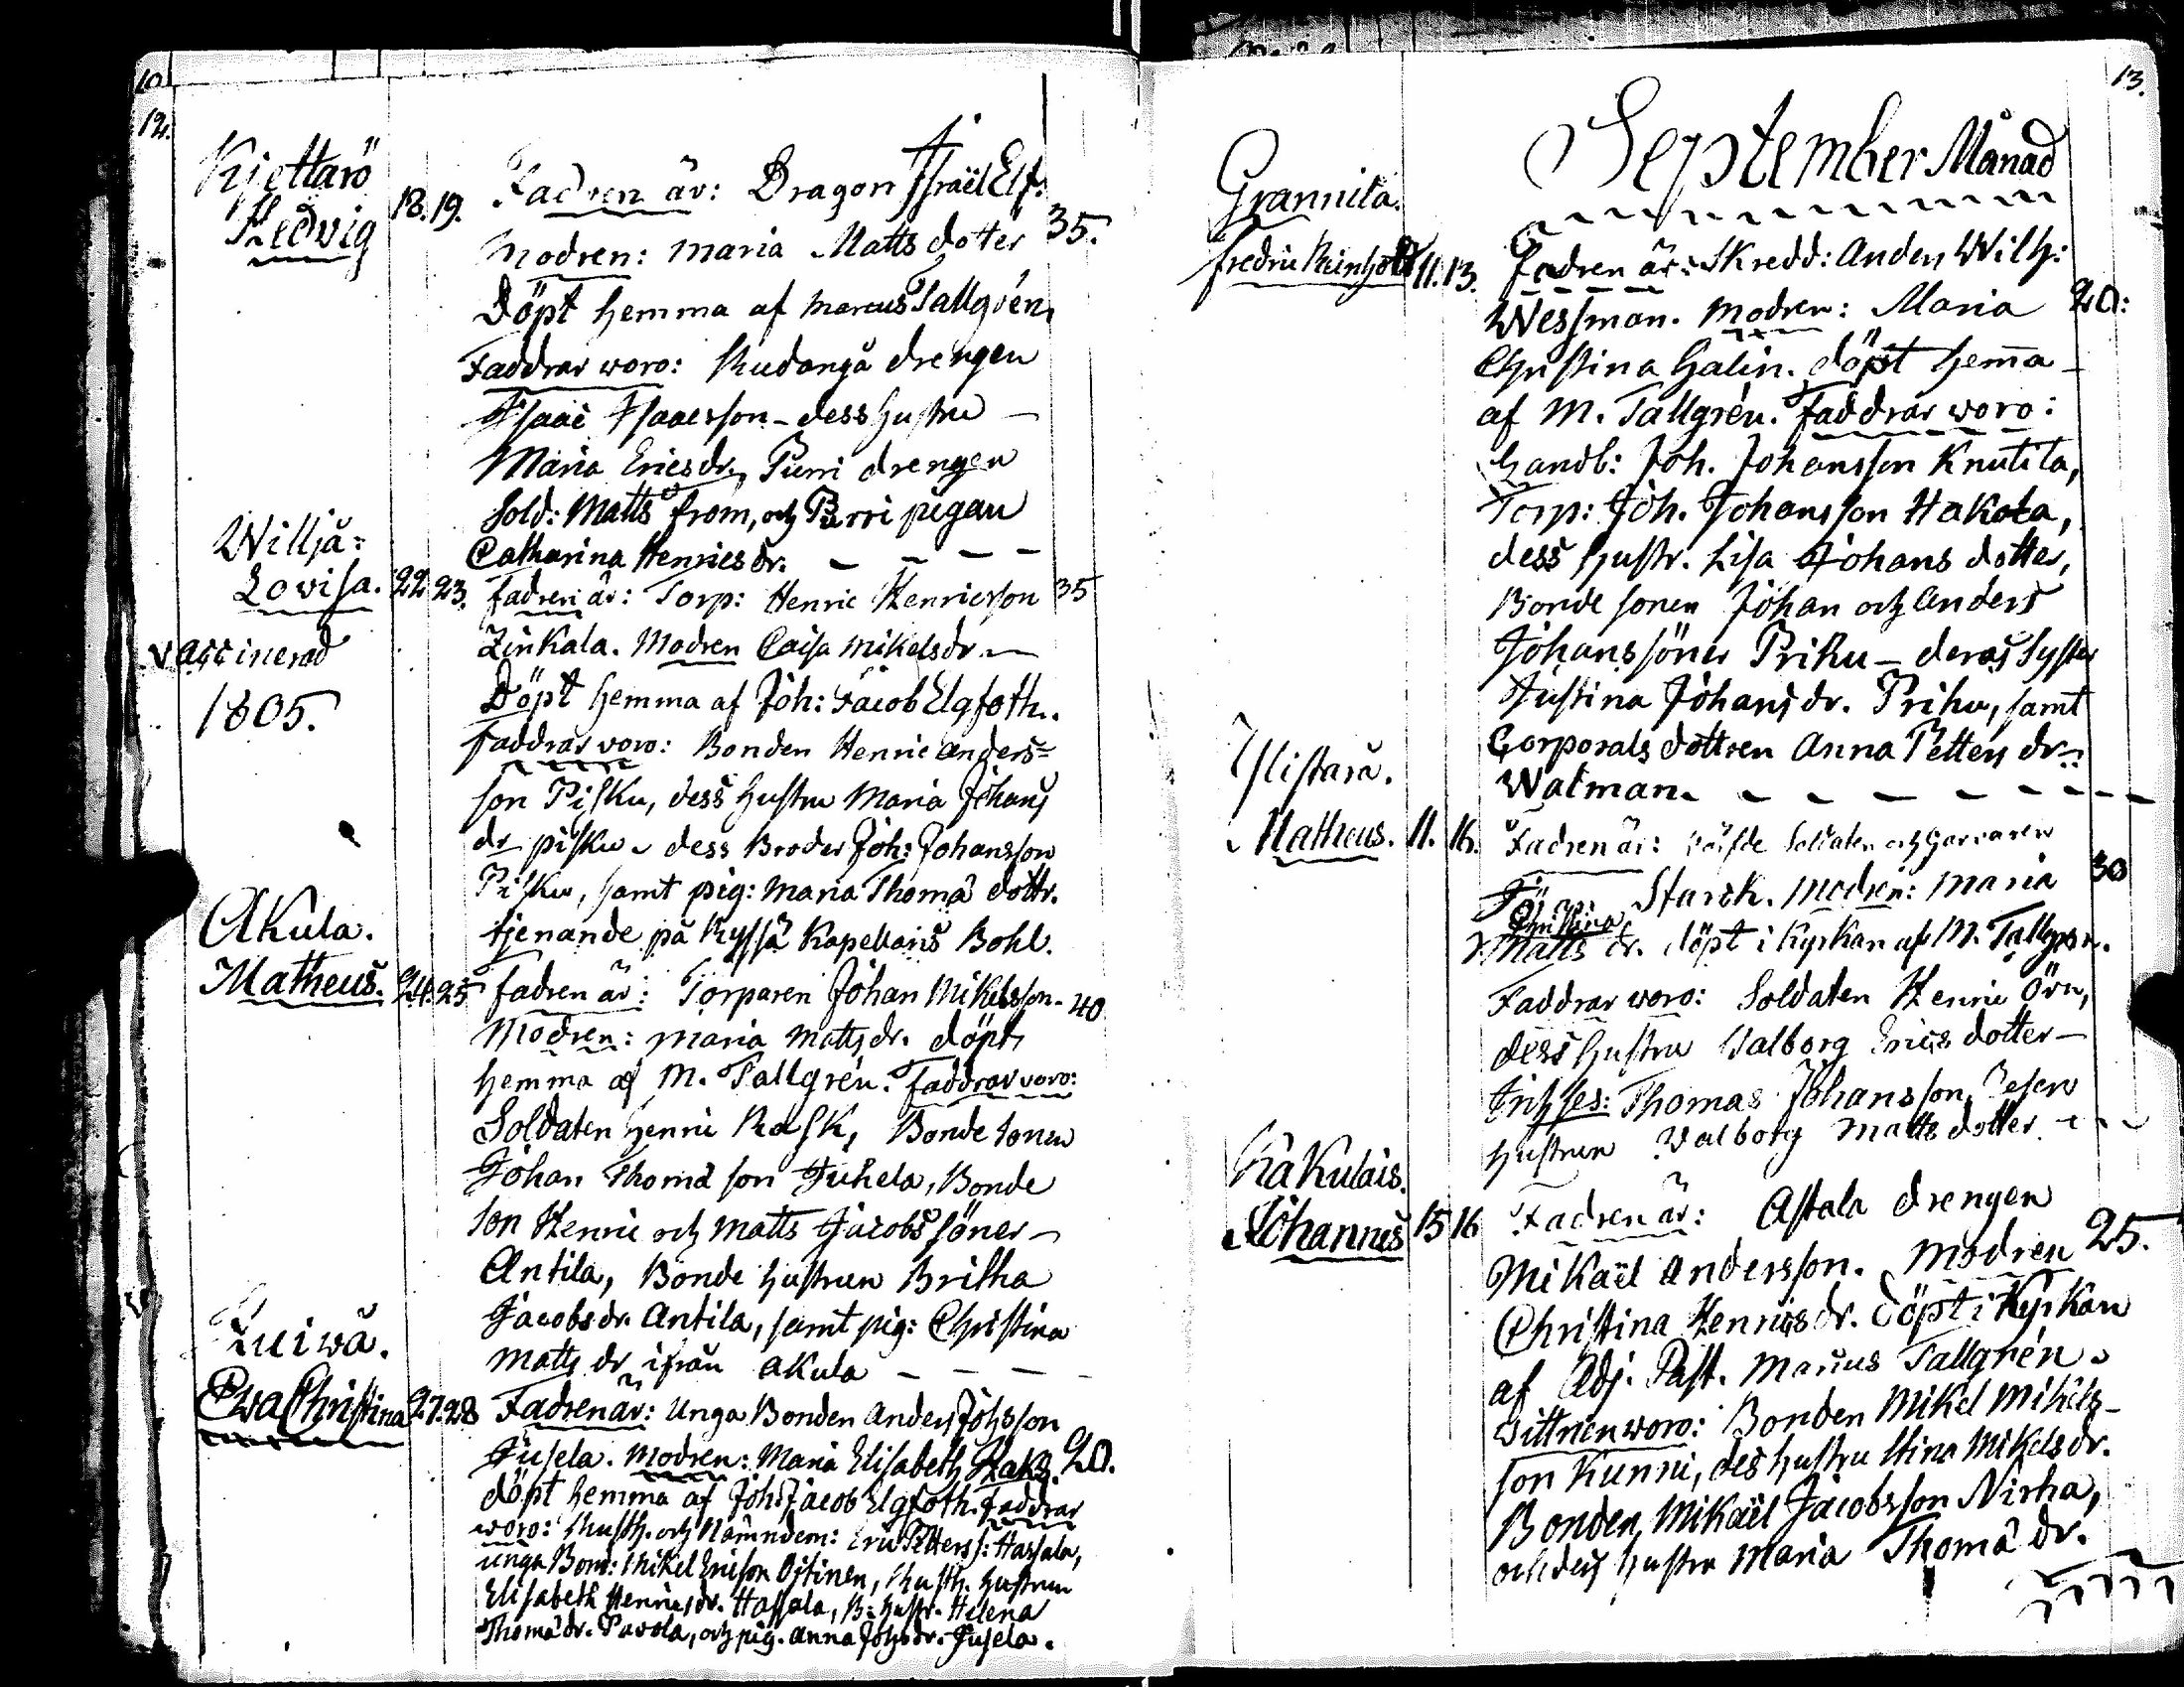 12.
Kjettarö
Hedvig
18. 19.
Fadren är: Dragon Israël Elf.
Modren: Maria Matts dotter
35.
Döpt hemma af Marcus Tallgrén,
Faddrar woro: drengen
Isaac Isaacsson - dess hustru
Maria Ericsdr, Purri drengen
Sold: Matts From, och Purri pigan
Catharina Henricsdr.
Williä:
Lovisa.
22 23.
Fadren är: Torp: Henric Henricsson
35
Zinkala. Modren Caisa Mikelsdr.
vaccinerad
1805.
Döpt hemma af Joh: Jacob Elgfoth.
Faddrar voro: Bonden Henric Anders=
son Pisku, dess hustru Maria Johans
dr Pisku, dess Broder Joh: Johansson
Pisku, samt pig: Maria Thomä dottr.
tjenande på Kapellans Bohl.
Akula.
Matheus.
24. 25
Fadren är: Torparen Johan Mikelsson.
40
Modren: Maria Matts dr. döpt
hemma af M. Tallgrén. Faddrar voro:
Soldaten Henric Rask, Bonde sonen
Johan Thomä son Juhela, Bonde
son Henric och Matts Jacobs söner
Antila, Bonde hustrun Britha
Jacobsdr. Antila, samt pig: Christina
Matts dr ifrån Akula
Ewa Christina
27. 28
Fadren är: Unga Bonden Anders Johsson
Jusela. Modren: Maria Elisabeth
20.
döpt hemma af Joh: Jacob Elgfoth. Faddrar
woro: Rusth. och Nämndem: Eric Petterss: Hassala,
unga Bond: Mikel Ericson Ojtinen, Rusth. hustrun
Elisabeth Henricsdr. Hassala, B: hustr. Helena
Thomä dr. Pavola, och pig. Anna Johsdr. Jusela.
13.
September Månad
Grannila.
Fredric Reinhold
11. 13.
Fadren är: Skredd: Anders Wilh:
Wessman. Modren: Maria
20:
Christina Galin. döpt hem̄a
af M. Tallgrén. Faddrar woro:
Handl: Joh. Johansson Knutila,
Torp: Joh. Johansson Hakola,
dess hustr. Lisa Johans dotter,
Bonde sonen Johan och Anders
Johanssöner Priku - deras syster
Justina Johansdr. Priku, samt
Corporals dottren Anna Petters dr:
Watman.
Ylistarå.
Matheus.
11. 16.
Fadren är: Soldaten och
Starck. Modren: Maria
30
Christina
Matts dr. döpt i Kyrkan af M. Tallgren.
Faddrar woro: Soldaten Henric Örn,
dess hustru Valborg Erics dotter
Thomas Johansson
hustrun Valborg Matts dotter
Kakulais.
Johannes
15 16
Fadren är: Astala drengen
Mikaël Andersson. Modren
25.
Christina Henricsdr. döpt i Kyrkan
af Adj. Past. Marcus Tallgrén.
Vittnen woro: Bonden Mikel Mikels-
son Kunni, des hustru Stina Mikelsdr.
Bonden Mikaël Jacobsson Nirha,
och des hustru Maria Thomä dr.